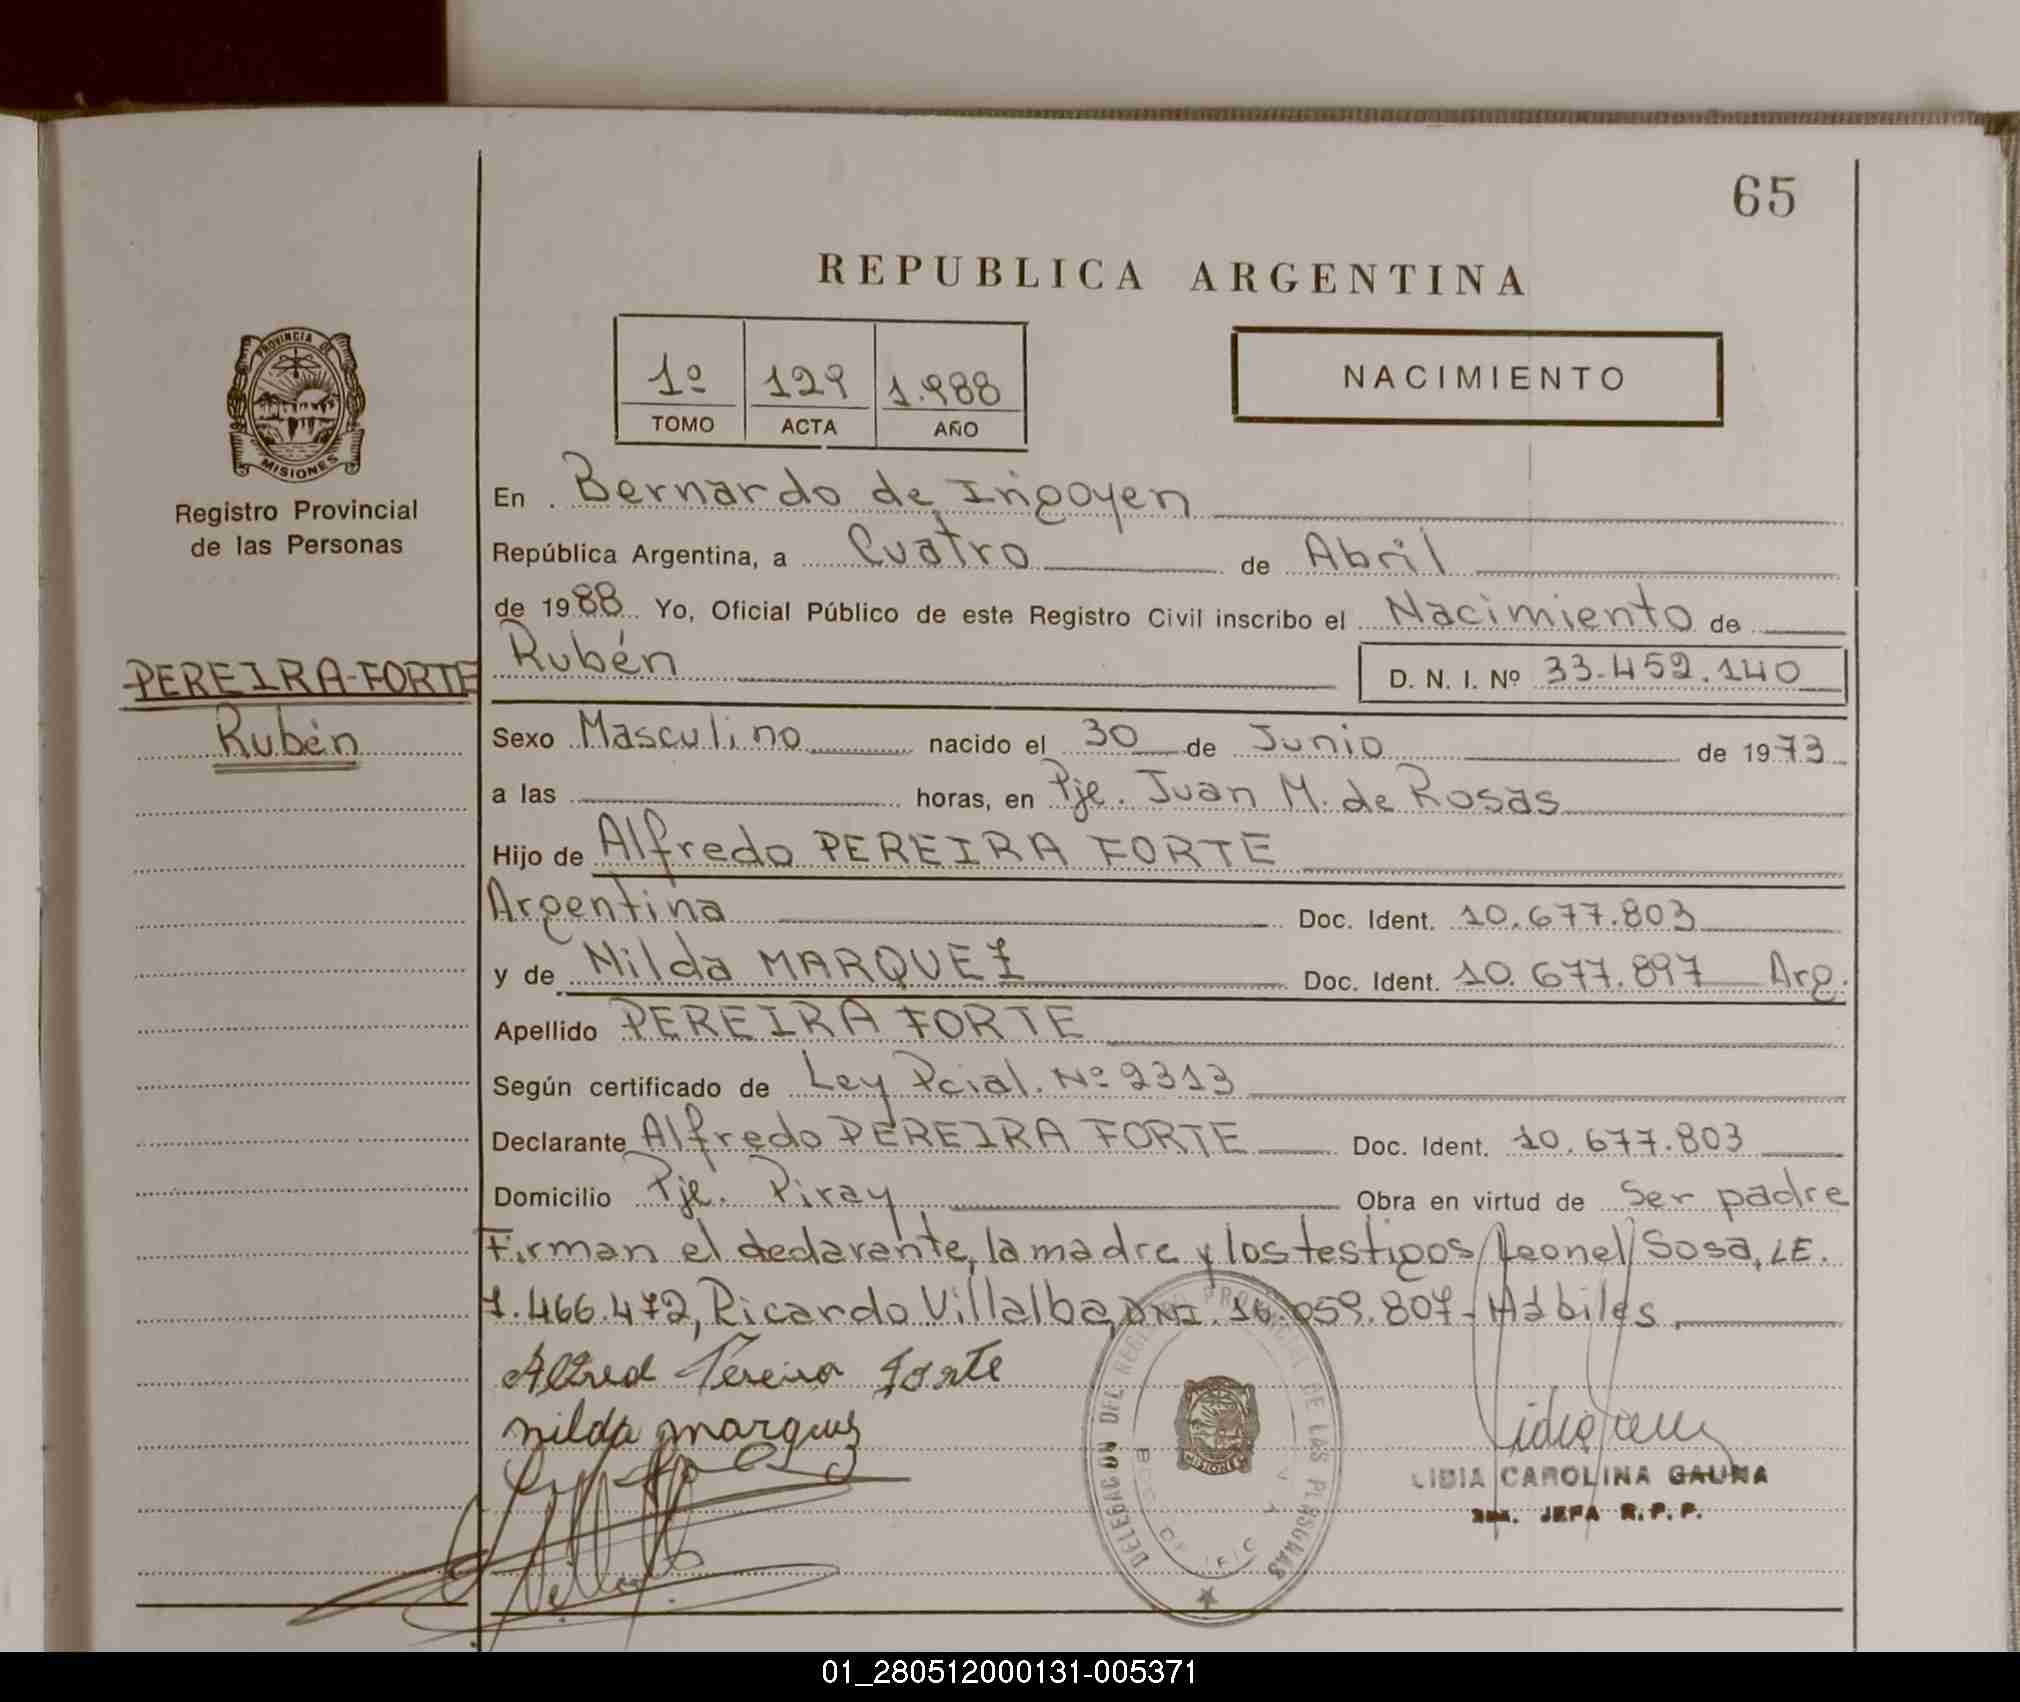 65
REPUBLICA ARGENTINA
PROVINCIA DE
MISIONES
Registro Provincial
de las Personas
1º 129 1.988
TOMO ACTA AÑO
NACIMIENTO
En Bernardo de Irigoyen
República Argentina, a Cuatro de Abril
de 1988 Yo, Oficial Público de este Registro Civil inscribo el Nacimiento de
PEREIRA-FORTE
Rubén
Rubén D. N. I. Nº 33.452.140
Sexo Masculino nacido el 30 de Junio de 1973
a las horas, en Pje. Juan M. de Rosas
Hijo de Alfredo PEREIRA FORTE
Argentina Doc. Ident. 10.677.803
y de Nilda MARQUEZ Doc. Ident. 10.677.897 Arg.
Apellido PEREIRA FORTE
Según certificado de Ley Pcial. Nº 2313
Declarante Alfredo PEREIRA FORTE Doc. Ident. 10.677.803
Domicilio Pje. Piray Obra en virtud de ser padre
Firman el declarante, la madre y los testigos Leonel Sosa, LE.
7.466.472, Ricardo Villalba, DNI. 16.059.807 - Hábiles
Alfred Pereira Forte
nilda marques
DELEGACION DEL REGISTRO PROVINCIAL DE LAS PERSONAS
MISIONES
LIDIA CAROLINA GAUNA
JEFA R. P. P.
01_280512000131-005371